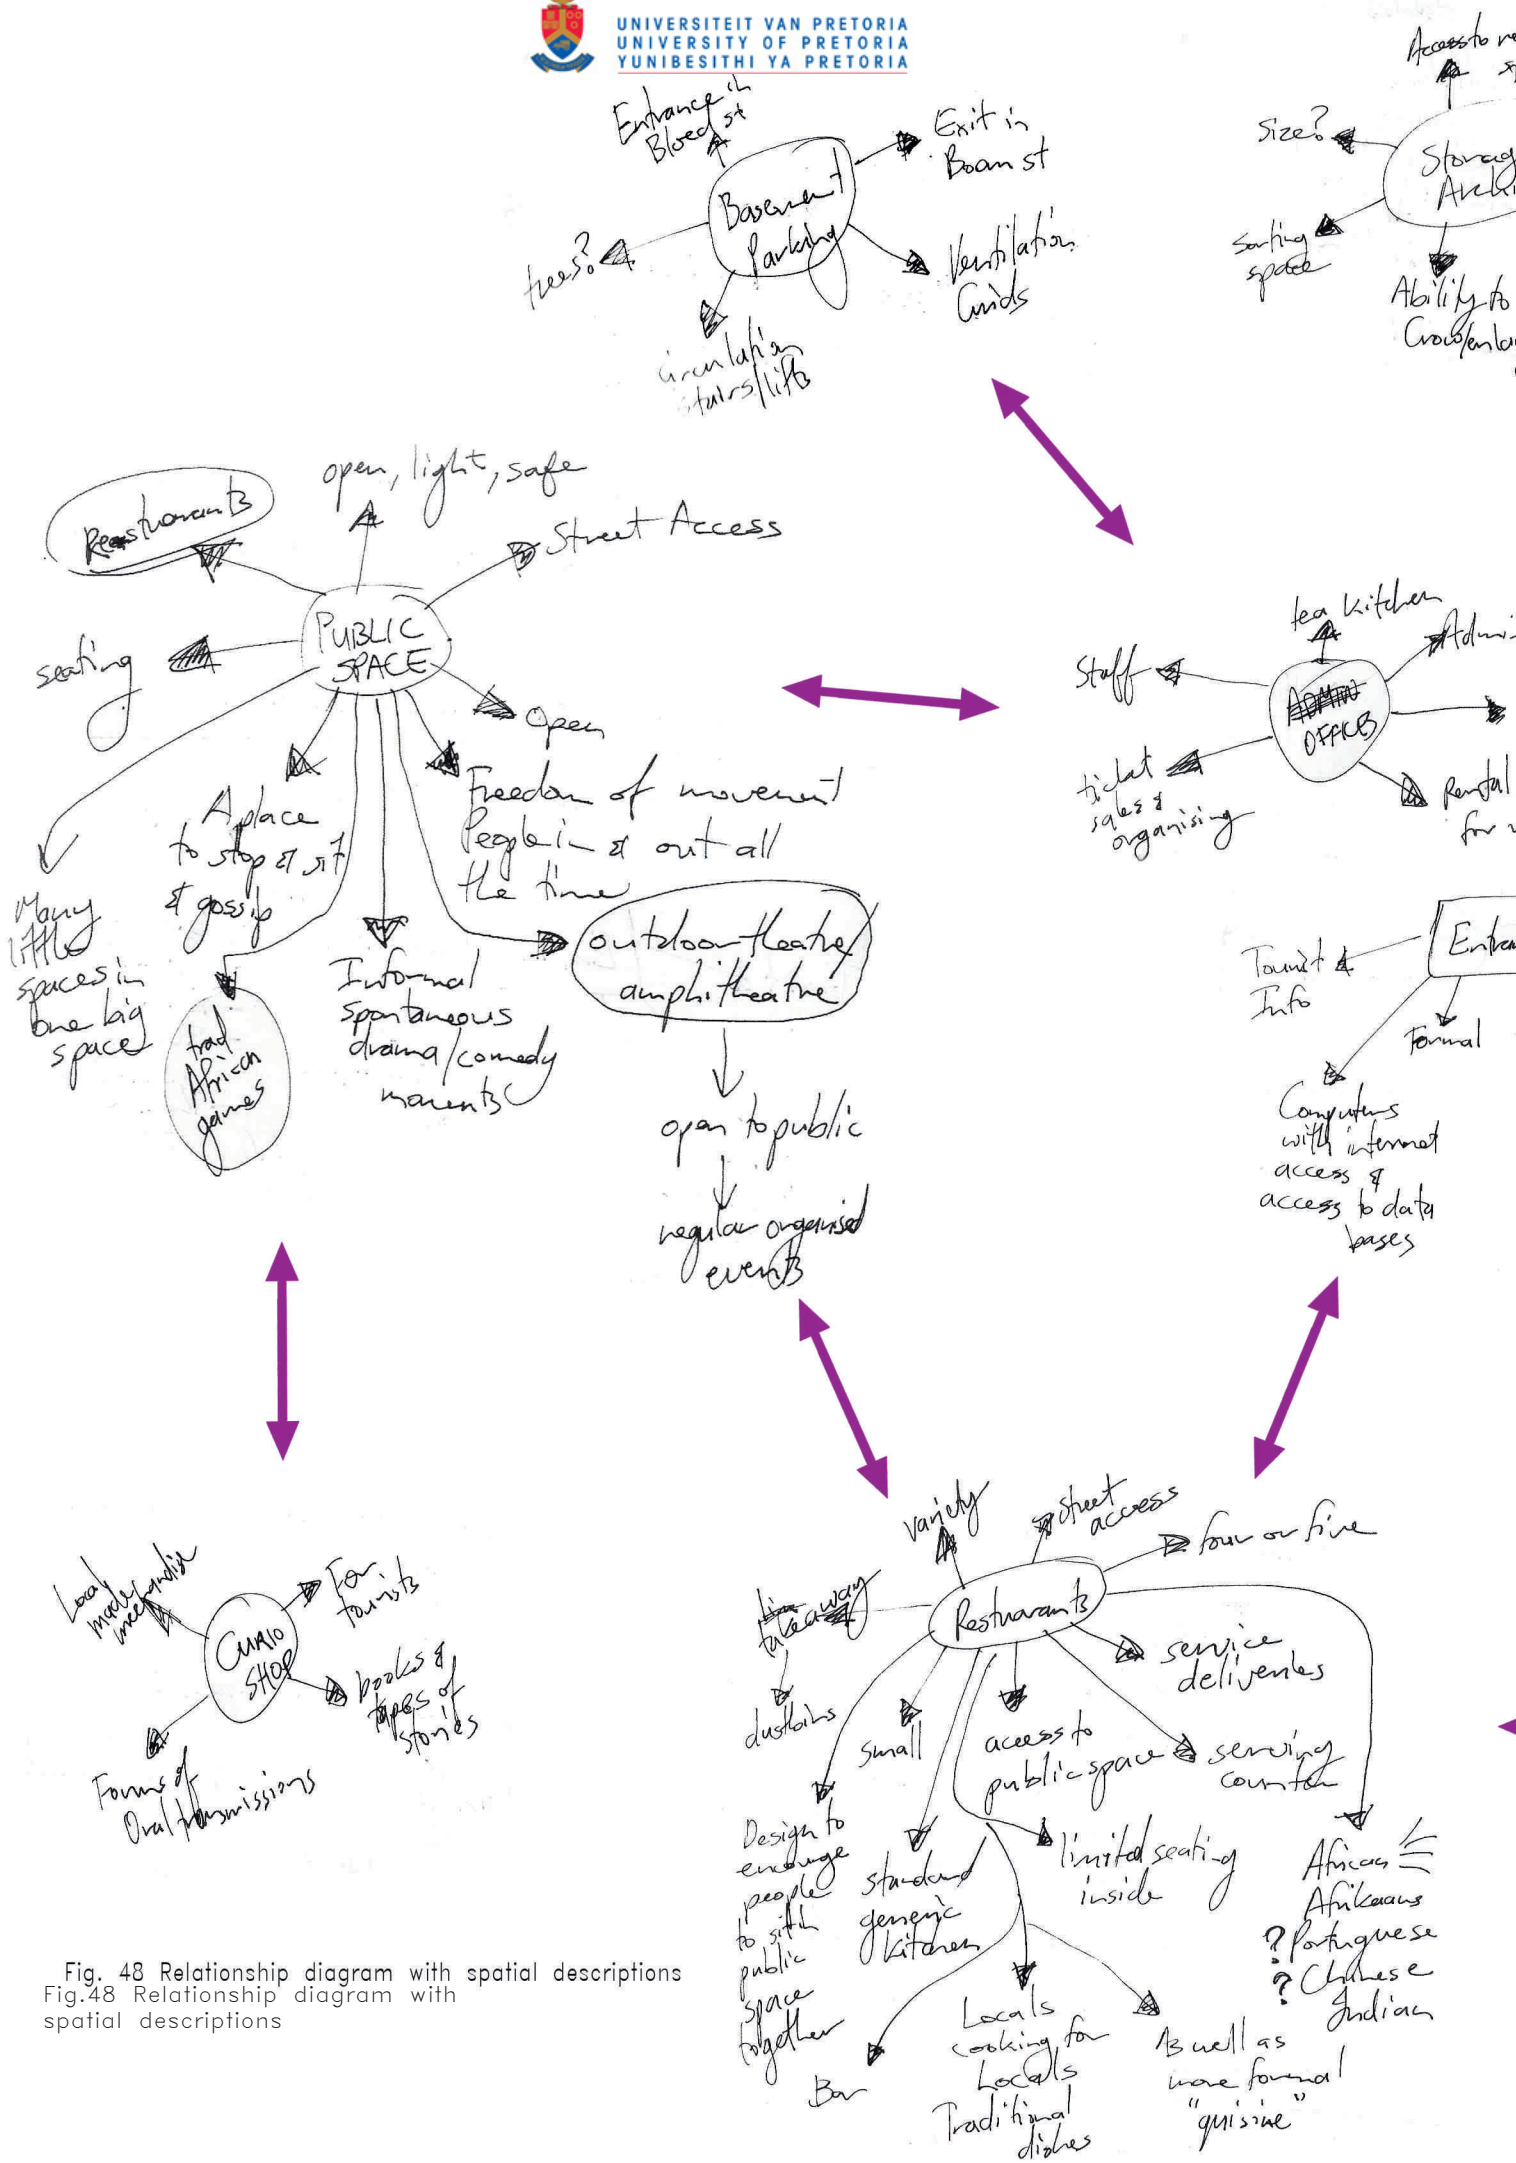 UNIVERSITEIT VAN PRETORIA
UNIVERSITY OF PRETORIA
YUNIBESITHI YA PRETORIA
Entrance in
Bloed st
Exit in
Boom st
Basement
Parking
trees?
Ventilation
Grids
circulation
stairs/lifts
Access to
Size?
Storag
Archi
Sorting
space
Ability to
Grow/enla
Restuarants
open, light, safe
Street Access
PUBLIC
SPACE
seating
open
A place
to stop & sit
& gossip
Freedom of movement
People in & out all
the time
Many
little
spaces in
one big
space
trad
African
games
Informal
spontaneous
drama/comedy
moments
outdoor theatre/
amphitheatre
open to public
regular organised
events
tea kitchen
Staff
Admi
ADMIN
OFFICES
ticket
sales &
organising
Rental
for
Entran
Tourist
Info
Formal
Computers
with internet
access &
access to data
bases
Local
made
merchandise
For
tourists
CURIO
SHOP
books &
tapes of
stories
Forms of
Oral transmissions
variety
street
access
four or five
takeaway
Restuarants
dustbins
small
access to
public space
service
deliveries
serving
counter
Design to
encourage
people
to sit in
public
space
together
standard
generic
kitchen
limited seating
inside
African
Afrikaans
? Portuguese
? Chinese
Indian
Bar
Locals
cooking for
Locals
Traditional
dishes
As well as
more formal
"quisine"
Fig. 48 Relationship diagram with spatial descriptions
Fig.48 Relationship diagram with
spatial descriptions